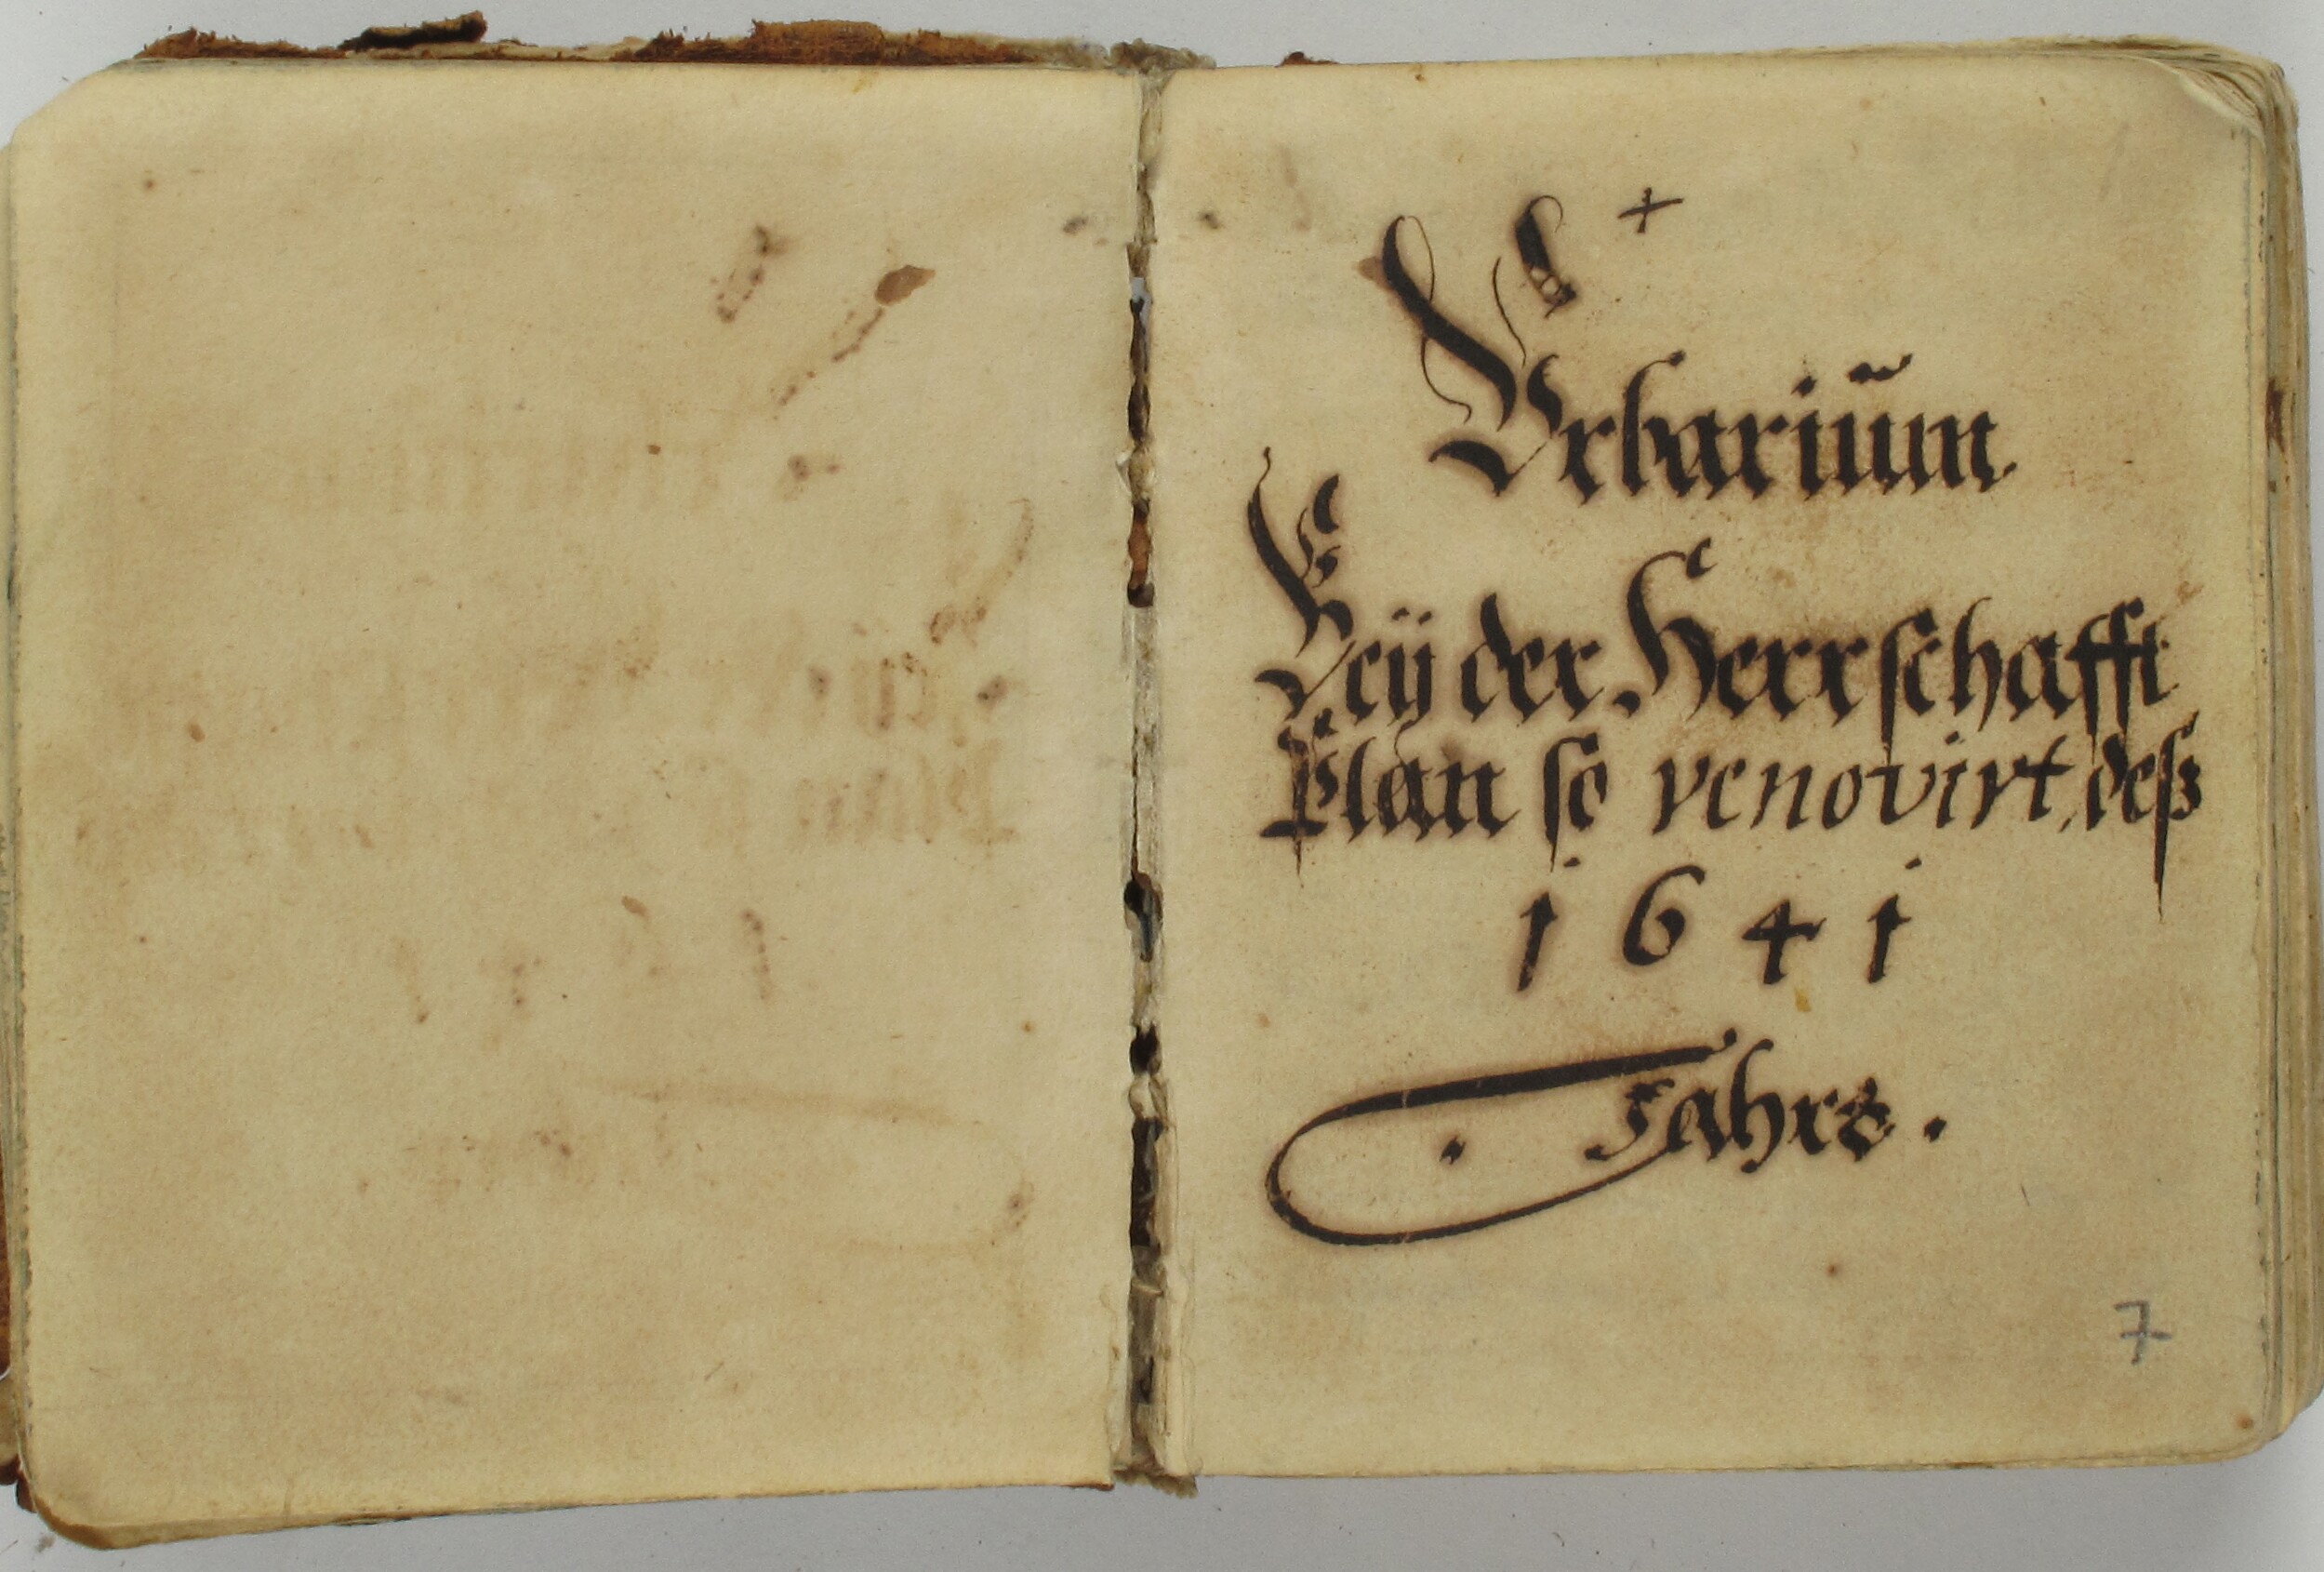 +
Vrbariūm
Beÿ der Herrschafft
Plan so renovirt, deß
1641
Jahrs.
7